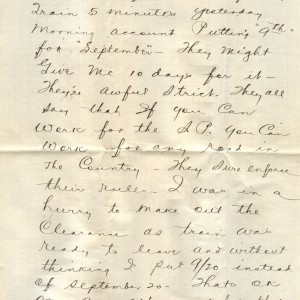 Train 5 minutes yesterday
Morning account Putting "9th"
for "September" - They might
Give Me 10 days for it -
They're Awful Strict. They all
Say that If you Can
Work for the S.P. You Can
Work for any road in
The Country - They Sure enforce
their rules - I was in a
hurry to make out the
Clearance as train was
ready to leave and without
thinking I put 9/20 instead
Of September 20 - Thats on